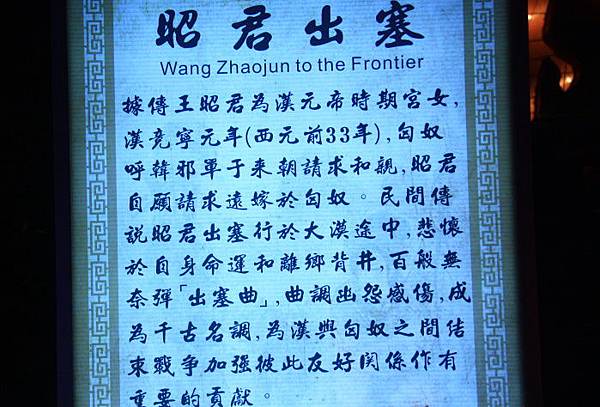 昭君出塞
Wang Zhaojun to the Frontier
據傳王昭君為漢元帝時期宮女,
漢竞寧元年(西元前33年),匈奴
呼韓邪單于来朝請求和親,昭君
自願請求遠嫁於匈奴。民間傳
說昭君出塞行於大漠途中,悲懷
於自身命運和離鄉背井,百般無
奈彈「出塞曲」,曲調幽怨感傷,成
為千古名調,為漢與匈奴之間结
束戰争加强彼此友好關係作有
重要的貢獻。